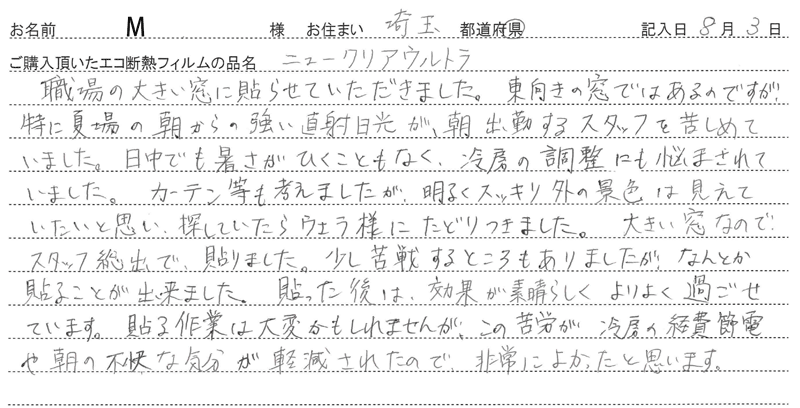 お名前 M 様 お住まい 埼玉 都道府県 記入日 8月 3日
ご購入頂いたエコ断熱フィルムの品名 ニュークリアウルトラ
職場の大きい窓に貼らせていただきました。東向きの窓ではあるのですが、
特に夏場の朝からの強い直射日光が、朝出勤するスタッフを苦しめて
いました。日中でも暑さがひくこともなく、冷房の調整にも悩まされて
いました。カーテン等も考えましたが、明るくスッキリ外の景色は見えて
いたいと思い、探していたらウェラ様にたどりつきました。大きい窓なので、
スタッフ総出で、貼りました。少し苦戦するところもありましたが、なんとか
貼ることが出来ました。貼った後は、効果が素晴らしくよりよく過ごせ
ています。貼る作業は大変かもしれませんが、この苦労が冷房の経費節電
や朝の不快な気分が軽減されたので、非常によかったと思います。